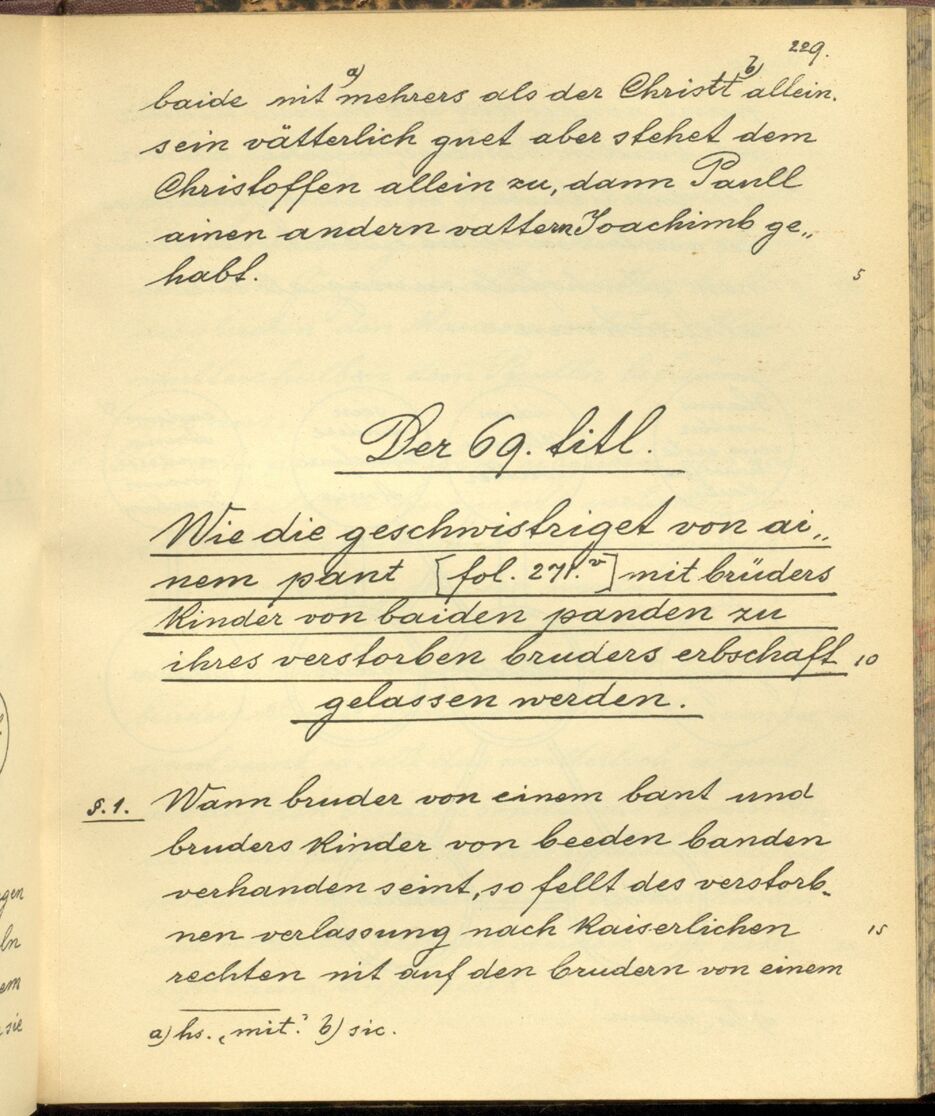 229.
baide nit a) mehrers als der Christt b) allein.
sein vätterlich guet aber stehet dem
Christoffen allein zu, dann Paull
ainen andern vattern Joachimb ge„
habt.
5
Der 69. titl.
Wie die geschwistriget von ai„
nem pant [fol. 271.v] mit brüders
kinder von baiden panden zu
ihres verstorben bruders erbschaft 10
gelassen werden.
§.1. Wann bruder von einem bant und
bruders kinder von beeden banden
verhanden seint, so fellt des verstorb-
nen verlassung nach kaiserlichen 15
rechten nit auf den brudern von einem
a) hs. „mit.“ b) sic.
gen
ln
em
sie